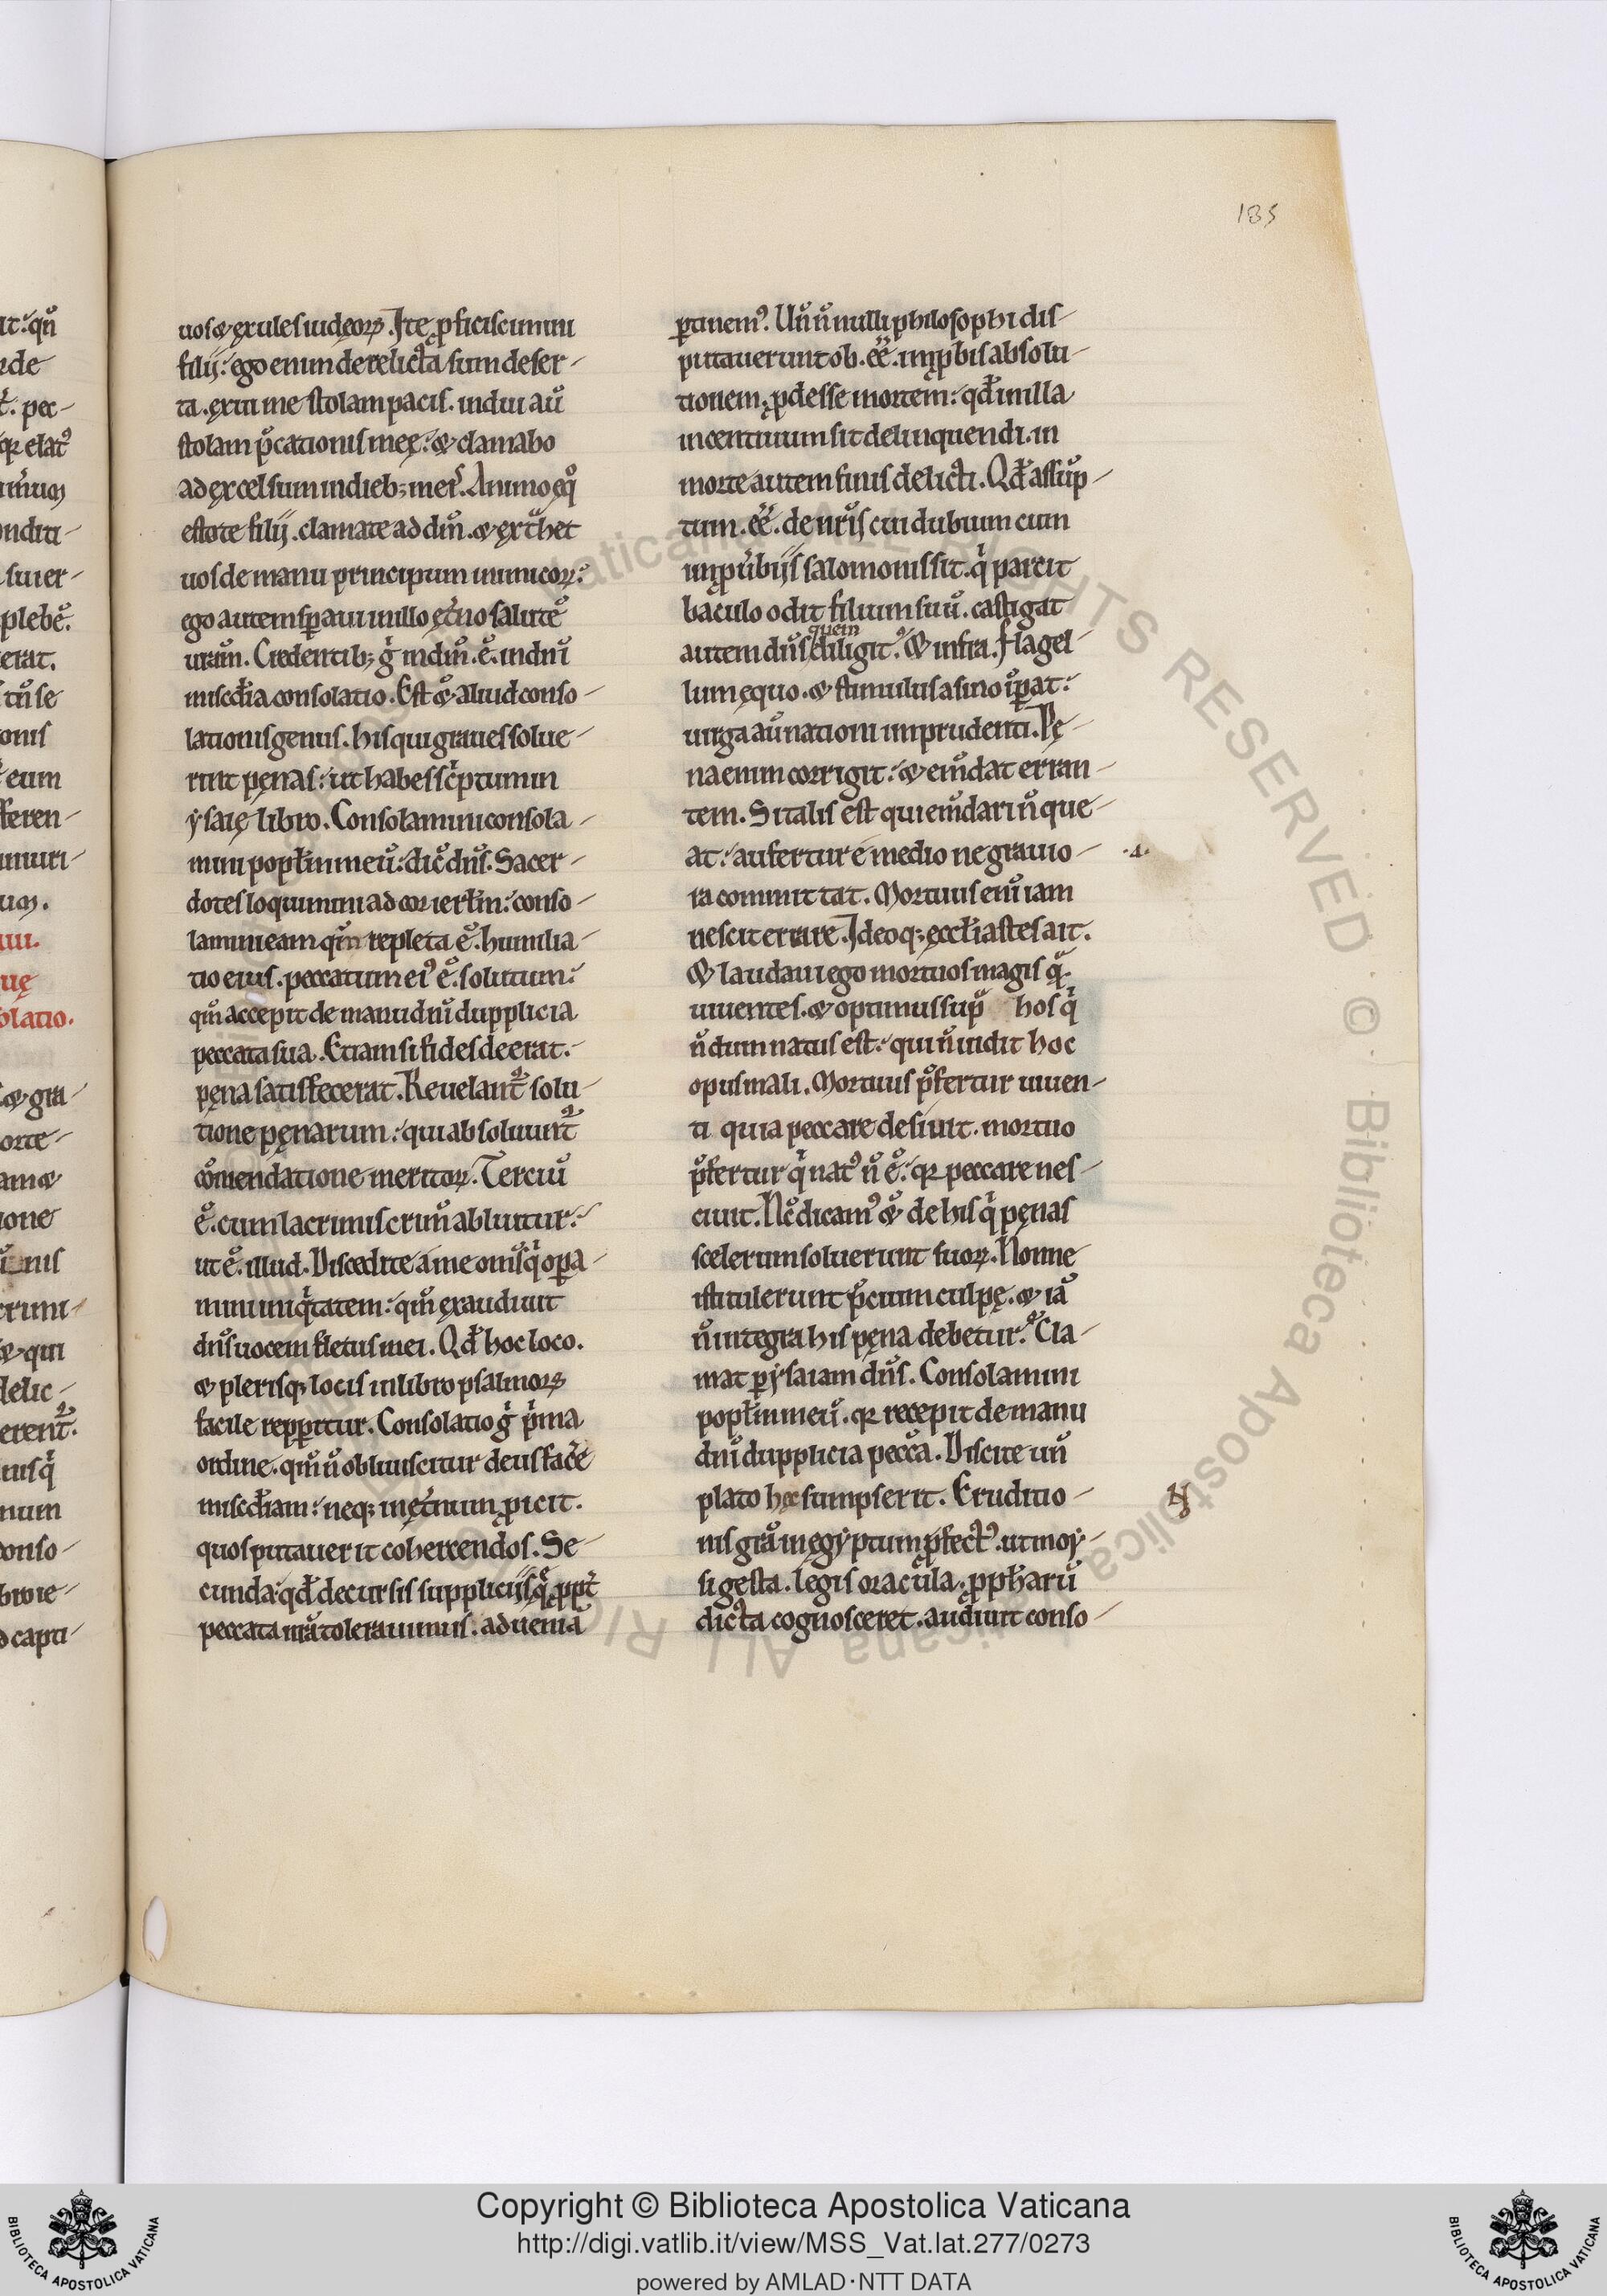 185
uos & exules iudeoꝝ. Ite ꝓficiscimini
filij: ego enim derelicta sum deser-
ta. exui me stolam pacis. indui aū
stolam p̄cationis meę: & clamabo
ad excelsum in dieb; meis̄. Animo eq̄
estote filij. clamate ad dn̄m. & ext̄het
uos de manu principum inimicoꝝ:
ego autem sꝑaui in illo et̄no salutē
uram̄. Credentib; g̊ in dn̄m. ē. in dn̄i
misc̄dia consolatio. Est & aliud conso-
lationis genus. his qui graues solue-
runt penas: ut habes sc̄ptum in
ysaię libro. Consolamini consola-
mini popłm meū: dic̄ dn̄s. Sacer-
dotes loquimini ad cor ierłm: conso-
lamini eam qm̄ repleta ē. humilia-
tio eius. peccatum ei᾿ ē. solutum:
qm̄ accepit de manu dn̄i dupplicia
peccata sua. Etiam si fides deerat.
pęna satisfecerat. Reuelant̄ solu-
tione pęnarum: qui absoluunt̄
cōmendatione meritoꝝ. Terciū
ē. cum lacrimis crim̄ abluitur:
ut ē. illud. Discedite a me om̄s q̇ oꝑa-
mini iniq̇tatem: qm̄ exaudiuit
dn̄s uocem fletus mei. Qd̄ hoc loco.
& plerisq; locis in libro psalmoꝝ
facile repꝑitur. Consolatio g̊ ṗma
ordine. qm̄ n̄ obliuiscitur deus facē
misc̄diam: neq; in et̄num ꝓicit.
quos putauerit cohercendos. Se-
cunda: qd̄ decursis supplicijs q̄ ꝓpt̄
peccata nr̄a tolerauimus. ad ueniā
ꝑtinem᾿. Un̄ n̄nulli philosophi dis-
putauerunt ob. eē. inꝓbis absolu-
tionem. ꝓdesse mortem: qd̄ in illa
incentiuum sit delinquendi. in
morte autem finis delicti. Qd̄ assūp-
tum. eē. de nr̄is cui dubium cum
in ꝓūbijs salomonis sit. q̇ parcit
baculo odit filium suū. castigat
quem
autem dn̄s diligit? & infra. Flagel-
lum equo. & stimulus asino īꝑat:
uirga aū nationi imprudenti. Pę-
na enim corrigit: & em̄dat erran-
tem. Si talis est qui em̄dari n̄ que-
at: aufertur e medio ne grauio-
.4.
ra committat. Mortuus eni iam
nescit errare. Ideoq; eccłiastes ait.
& laudaui ego mortuos magis q̄.
uiuentes. & optimus sup̄ hos q̇
n̄dum natus est: qui n̄ uidit hoc
opus mali. Mortuus p̄fertur uiuen-
ti quia peccare desiuit. mortuo
p̄fertur q̇ nat᾿ n̄ ē: qꝛ peccare nes-
ciuit. Nc̄ dicam᾿ & de his q̇ pęnas
scelerum soluerunt suoꝝ. Nonne
isti tulerunt p̄cium culpę. & iā
n̄ integra his pęna debetur? Cla-
mat ꝑ ysaiam dn̄s. Consolamini
popłm meū. qꝛ recepit de manu
dn̄i dupplicia pecc̄a. Discite un̄
plato hęc sumpserit. Eruditio-
nis gr̄a in egyptum ꝓfect᾿. ut moy-
si gesta. legis oracula. ꝓphetarū
dicta cognosceret. audiuit conso-
Copyright © Biblioteca Apostolica Vaticana
http://digi.vatlib.it/view/MSS_Vat.lat.277/0273
powered by AMLAD·NTT DATA